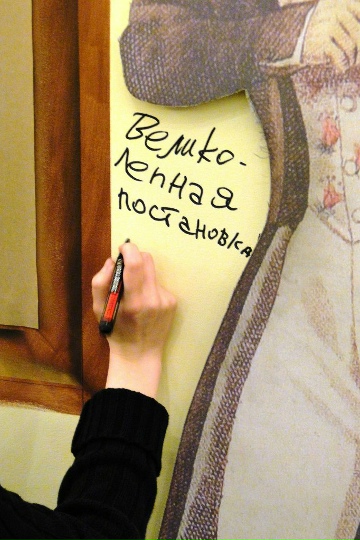 Велико-
лепная
постановка